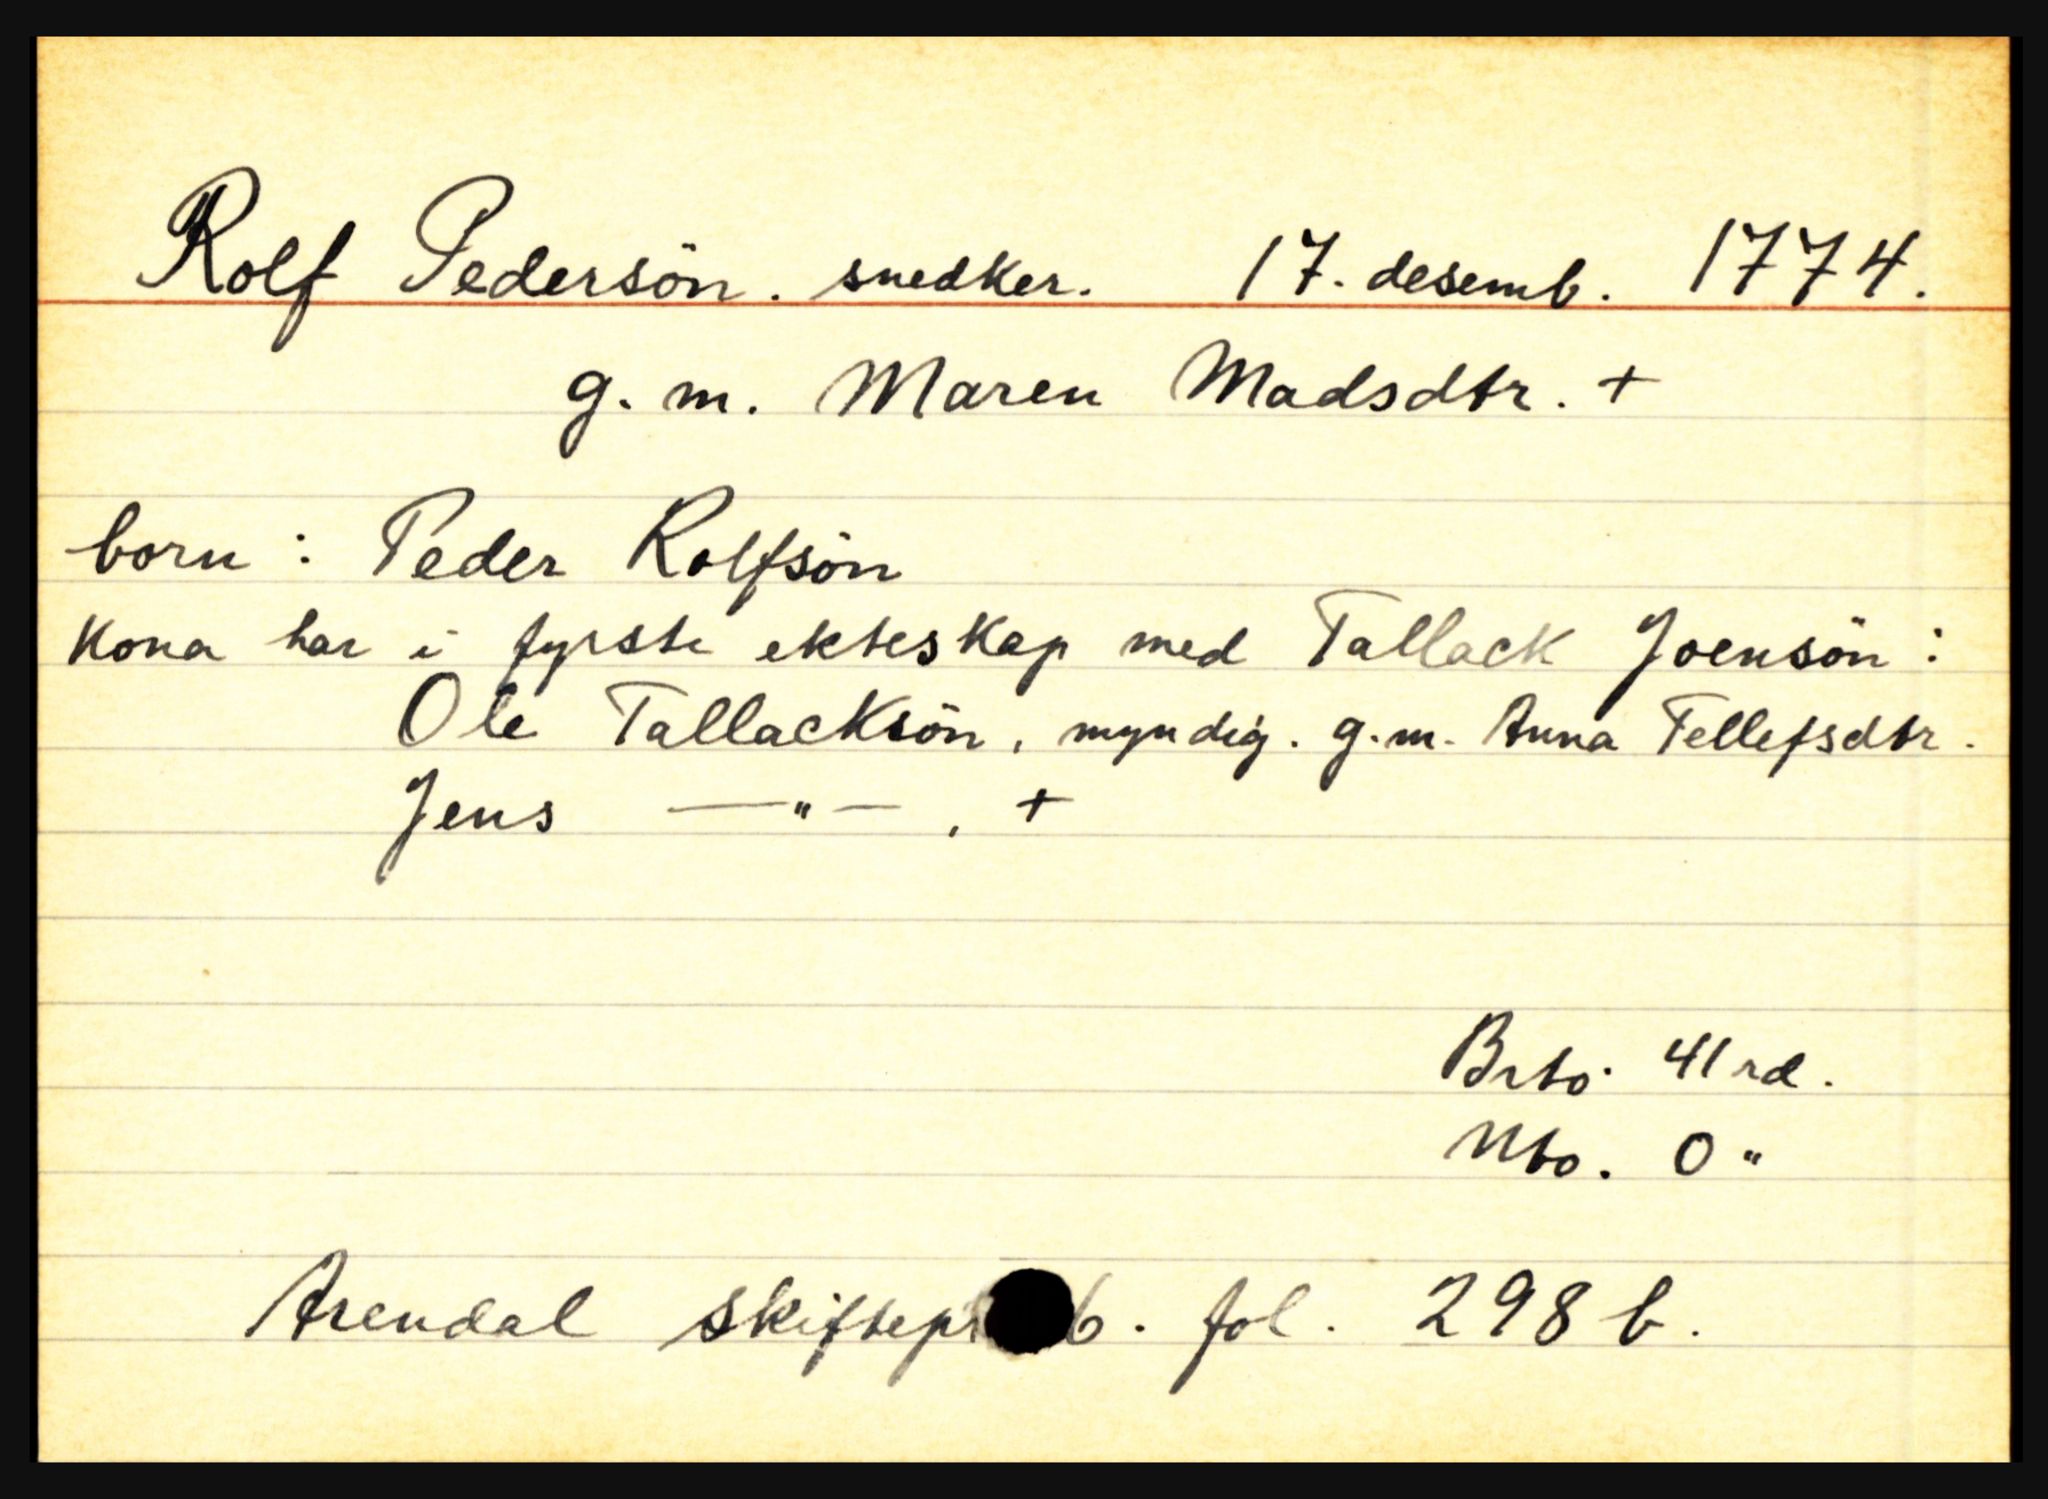 Rolf Pedersön. snedker. 17. desemb. 1774.
g. m. Maren Madsdtr. +
born: Peder Rolfsön
Kona har i fyrste ekteskap med Tallack Joensön:
Ole Tallacksön, myndig. g.m. Anna Tellefsdtr.
Jens —"—, +
Brto. 41 rd.
Nto. 0 "
Arendal skiftepr 6. fol. 298 b.